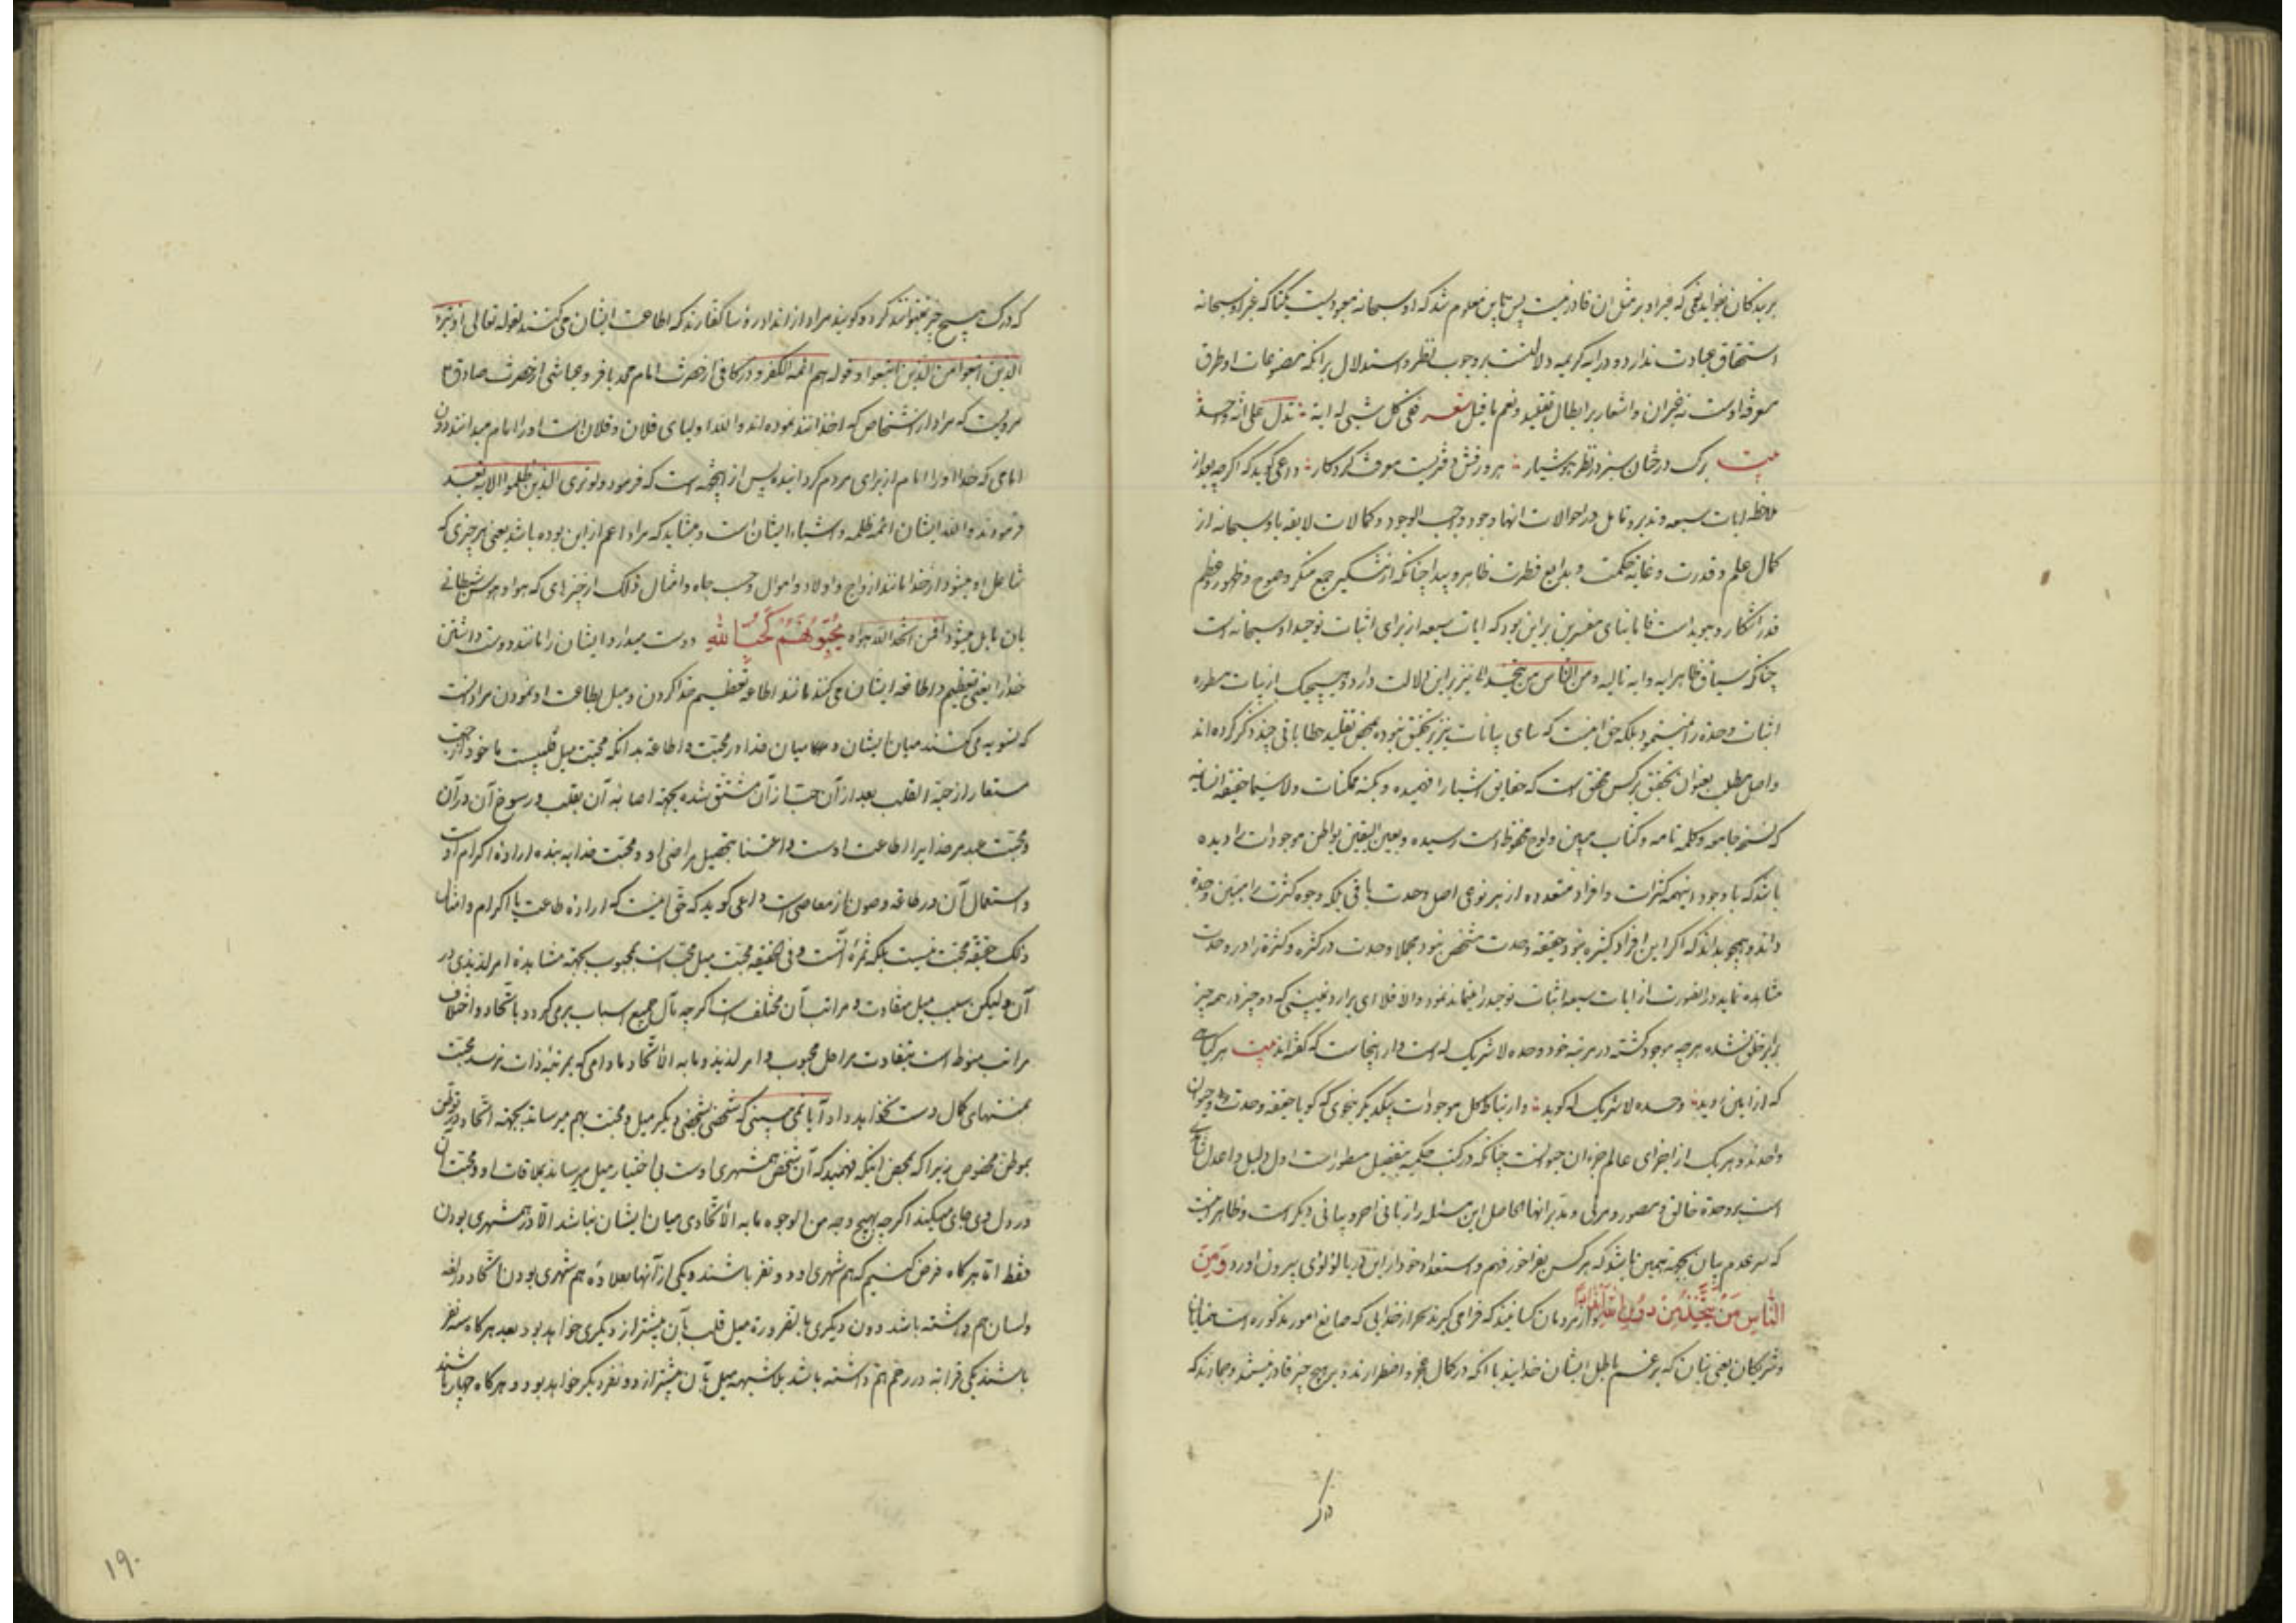 بر بندگان نخواید نمی که غیر او بر مثل ان قادر نیست پس باین معلوم شد که او سبحانه معبودیست یکتا که غیر او سبحانه
استحقاق عبادت ندارد و درایه کریمه دلالتست بر وجوب نظر و استدلال بر انکه مصنوعات او طرق
معرفة اوست نه غیر ان و اشعار بر ابطال تقلید و نعم ما قیل شعر ففی کل شیٔ له ایة تدل علی انه واحد
بیت برک درختان سبز در نظر هوشیار هر ورقش دفتریست معرفت کردکار داعی کوید که اکرچه بعد از
ملاحظه ایات سبعه و تدبر و تامل در احوالات انها وجود واجب الوجود و کمالات لایقه باو سبحانه از
کمال علم و قدرت و غایة حکمت و بدایع فطرت ظاهر و پیدا چنانکه از تشکیر جمیع منکر وضوح و ظهور و عظم
قدر اشکار و هویدا است فاما بنای مفسرین بر این بود که ایات سبعه از برای اثبات توحید او سبحانه است
چنانکه سیاق ظاهر ایه و ایه تالیه و من الناس من یتخذ الا نیز بر این دلالت دارد و هیچیک از بیانات مسطوره
اثبات وحدة را ننمود بلکه حق اینست که سای بیانات نیز بر تحقیق نبوده بمحض تقلید خطاباتی چند ذکر کرده اند
و اصل مطلب بعنوان تحقیق بر کس محقق است که حقایق اشیاء را فهمیده و بکنه ممکنات و لا سیما حقیقة انسانیه
که نسخه جامعه و کلمه تامه و کتاب مبین و لوح محفوظ است رسیده و بعین الیقین بواطن موجودات را دیده
باشد که با وجود اینهمه کثرات و افراد متعدده از هر نوعی اصل وحدت باقی بلکه وجوه کثرت را مبین وحدة
داند و هیچو بداند که اکر این افراد کثیره نبود حقیقة وحدت مشخص نبود مجملا وحدت در کثرة و کثرة را در وحدت
مشاهده نماید در انصورت از ایات سبعه اثبات توحید را میتواند نمود و الا فلا ای برادر نمی بینی که دو چیز در همه چیز
برابر خلق نشده هر چه موجود کشته در مرتبه خود وحده لا شریک له است و از اینجاست که کفته اند بیت هر کیاهی
که از زمین روید وحده لا شریک له کوید و ارتباط کل موجودات بیکدیکر بنحوی که کویا حقیقة وحدت و چون
واحدند و هر یک از اجزای عالم جزء ان حیوانست چنانکه در کتب حکمیه بتفصیل مسطور است اول دلیل و اعدل شاهدی
است بر وحدة خالق و مصور و مربی و مدبر انها الحاصل این مسئله را زبانی اخر و بیانی دیکر است و ظاهر اینست
که سر عدم بیان بجهة همین باشد که هر کس بفراخور فهم و استعداد خود از این دریا لؤلؤی بیرون اورد وَمِنَ
النَّاسِ مَنْ یَتَّخِذُ مِنْ دُونِ اللَّهِ أَنْدَادًا و از مردمان کسانیند که فرا می کیرند بجز از خدایی که صانع امور مذکوره است همتایان
و شریکان یعنی بتان که بزعم باطل ایشان خدایند با انکه در کمال عجز و اضطرارند و بر هیچ چیز قادر نیستند و جمادند که
درک
که درک هیچ چیز نتوانند کرد و کویند مراد از انداد رؤسا کفارند که اطاعت ایشان می کنند لقوله تعالی اذ تبرّء
الذین اتبعوا من الذین اتبعوا و قوله هم ائمة الکفر و در کافی از حضرت امام محمد باقر و عیاشی از حضرت صادق ع
مرویست که مراد از اشخاص که اخذ انداد نموده اند والله اولیای فلان و فلان است او را امام میدانند دون
امامی که خدا او را امام از برای مردم کردانیده پس از اینجهة است که فرمود و لو تری الذین ظلموا الایه بعد
فرمودند والله ایشان ائمه ظلمه و اشیاع ایشان است و میشاید که مراد اعم از این بوده باشد یعنی هر چیزی که
شاغل او میشود از خدا مانند ازواج و اولاد و اموال و حب جاه و امثال ذلک از چیزهای که هوا و هوس شیطانی
بان مایل میشود أفمن اتخذ الهه هواه یُحِبُّونَهُمْ کَحُبِّ اللهِ دوست میدارد ایشان را مانند دوست داشتن
خدا را یعنی تعظیم و اطاعه ایشان می کند مانند اطاعه و تعظیم خدا کردن و میل بطاعت او نمودن مراد انست
که تسویه می کنند میان ایشان و میان خدا در محبت و اطاعه بدانکه محبت میل قلبیست ماخوذ از حب
مستعار از حبة القلب بعد از آن حب از آن مشتق شده بجهة اصابه آن بقلب و رسوخ آن در آن
و محبت عبد مر خدا یرا اطاعت اوست و اعتنا بتحصیل مراضی او و محبت خدا به بنده اراده اکرام اوست
و استعمال آن در طاعه و صون از معاصی است داعی کوید که حق اینست که اراده طاعت یا اکرام و امثال
ذلک حقیقة محبت نیست بلکه ثمرهٔ آنست و فی الحقیقه محبت میل محب است بمحبوب بجهة مشاهده امر لذیذی در
آن و لیکن سبب میل متفاوت و مراتب آن مختلف است اکرچه مآل جمیع اسباب برمی کردد باتحاد و اختلاف
مراتب منوط است بتفاوت مراحل محبوب و امر لذیذ و ما به الاتحاد مادامی که بمرتبهٔ ذات نرسد محبت
بمنتهای کمال دست نخواهد داد آیا نمی بینی که شخصی بشخصی دیکر میل و محبت بهم میرساند بجهة اتحاد در توطن
بموطن مخصوص زیرا که بمحض اینکه فهمید که آن شخص همشهری اوست بی اختیار میل میرساند بملاقات او و محبت آن
در دل وی جای میکند اکرچه بهیچ وجه من الوجوه ما به الاتحادی میان ایشان نباشد الا در همشهری بودن
فقط اما هرکاه فرض کنیم که هم شهری او دو نفر باشند و یکی از آنها بعلاوه هم شهری بودن اتحاد در لغة
و لسان هم داشته باشد دون دیکری بالضرورة میل قلب بآن بیشتر از دیکری خواهد بود بعد هرکاه سه نفر
باشند یکی قرابة در رحم هم داشته باشد بلاشبهه میل بآن بیشتر از دو نفر دیکر خواهد بود و هرکاه چهار باشند
۱۹۰